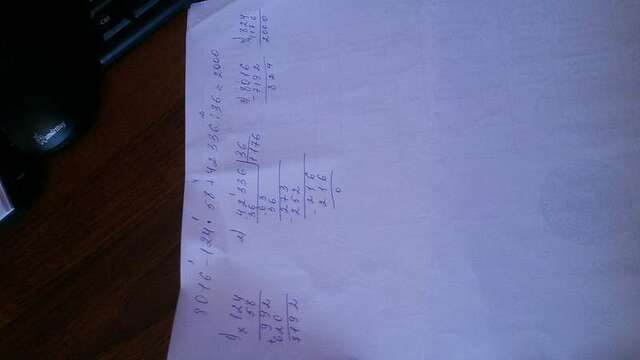 8016 - 124 · 58 + 42336 : 36 = 2000
1) × 124
58
992
+ 620
7192
2) 42336 | 36
36 1176
63
36
273
- 252
- 216
216
0
3) 8016
- 7192
824
4) 824
1176
2000